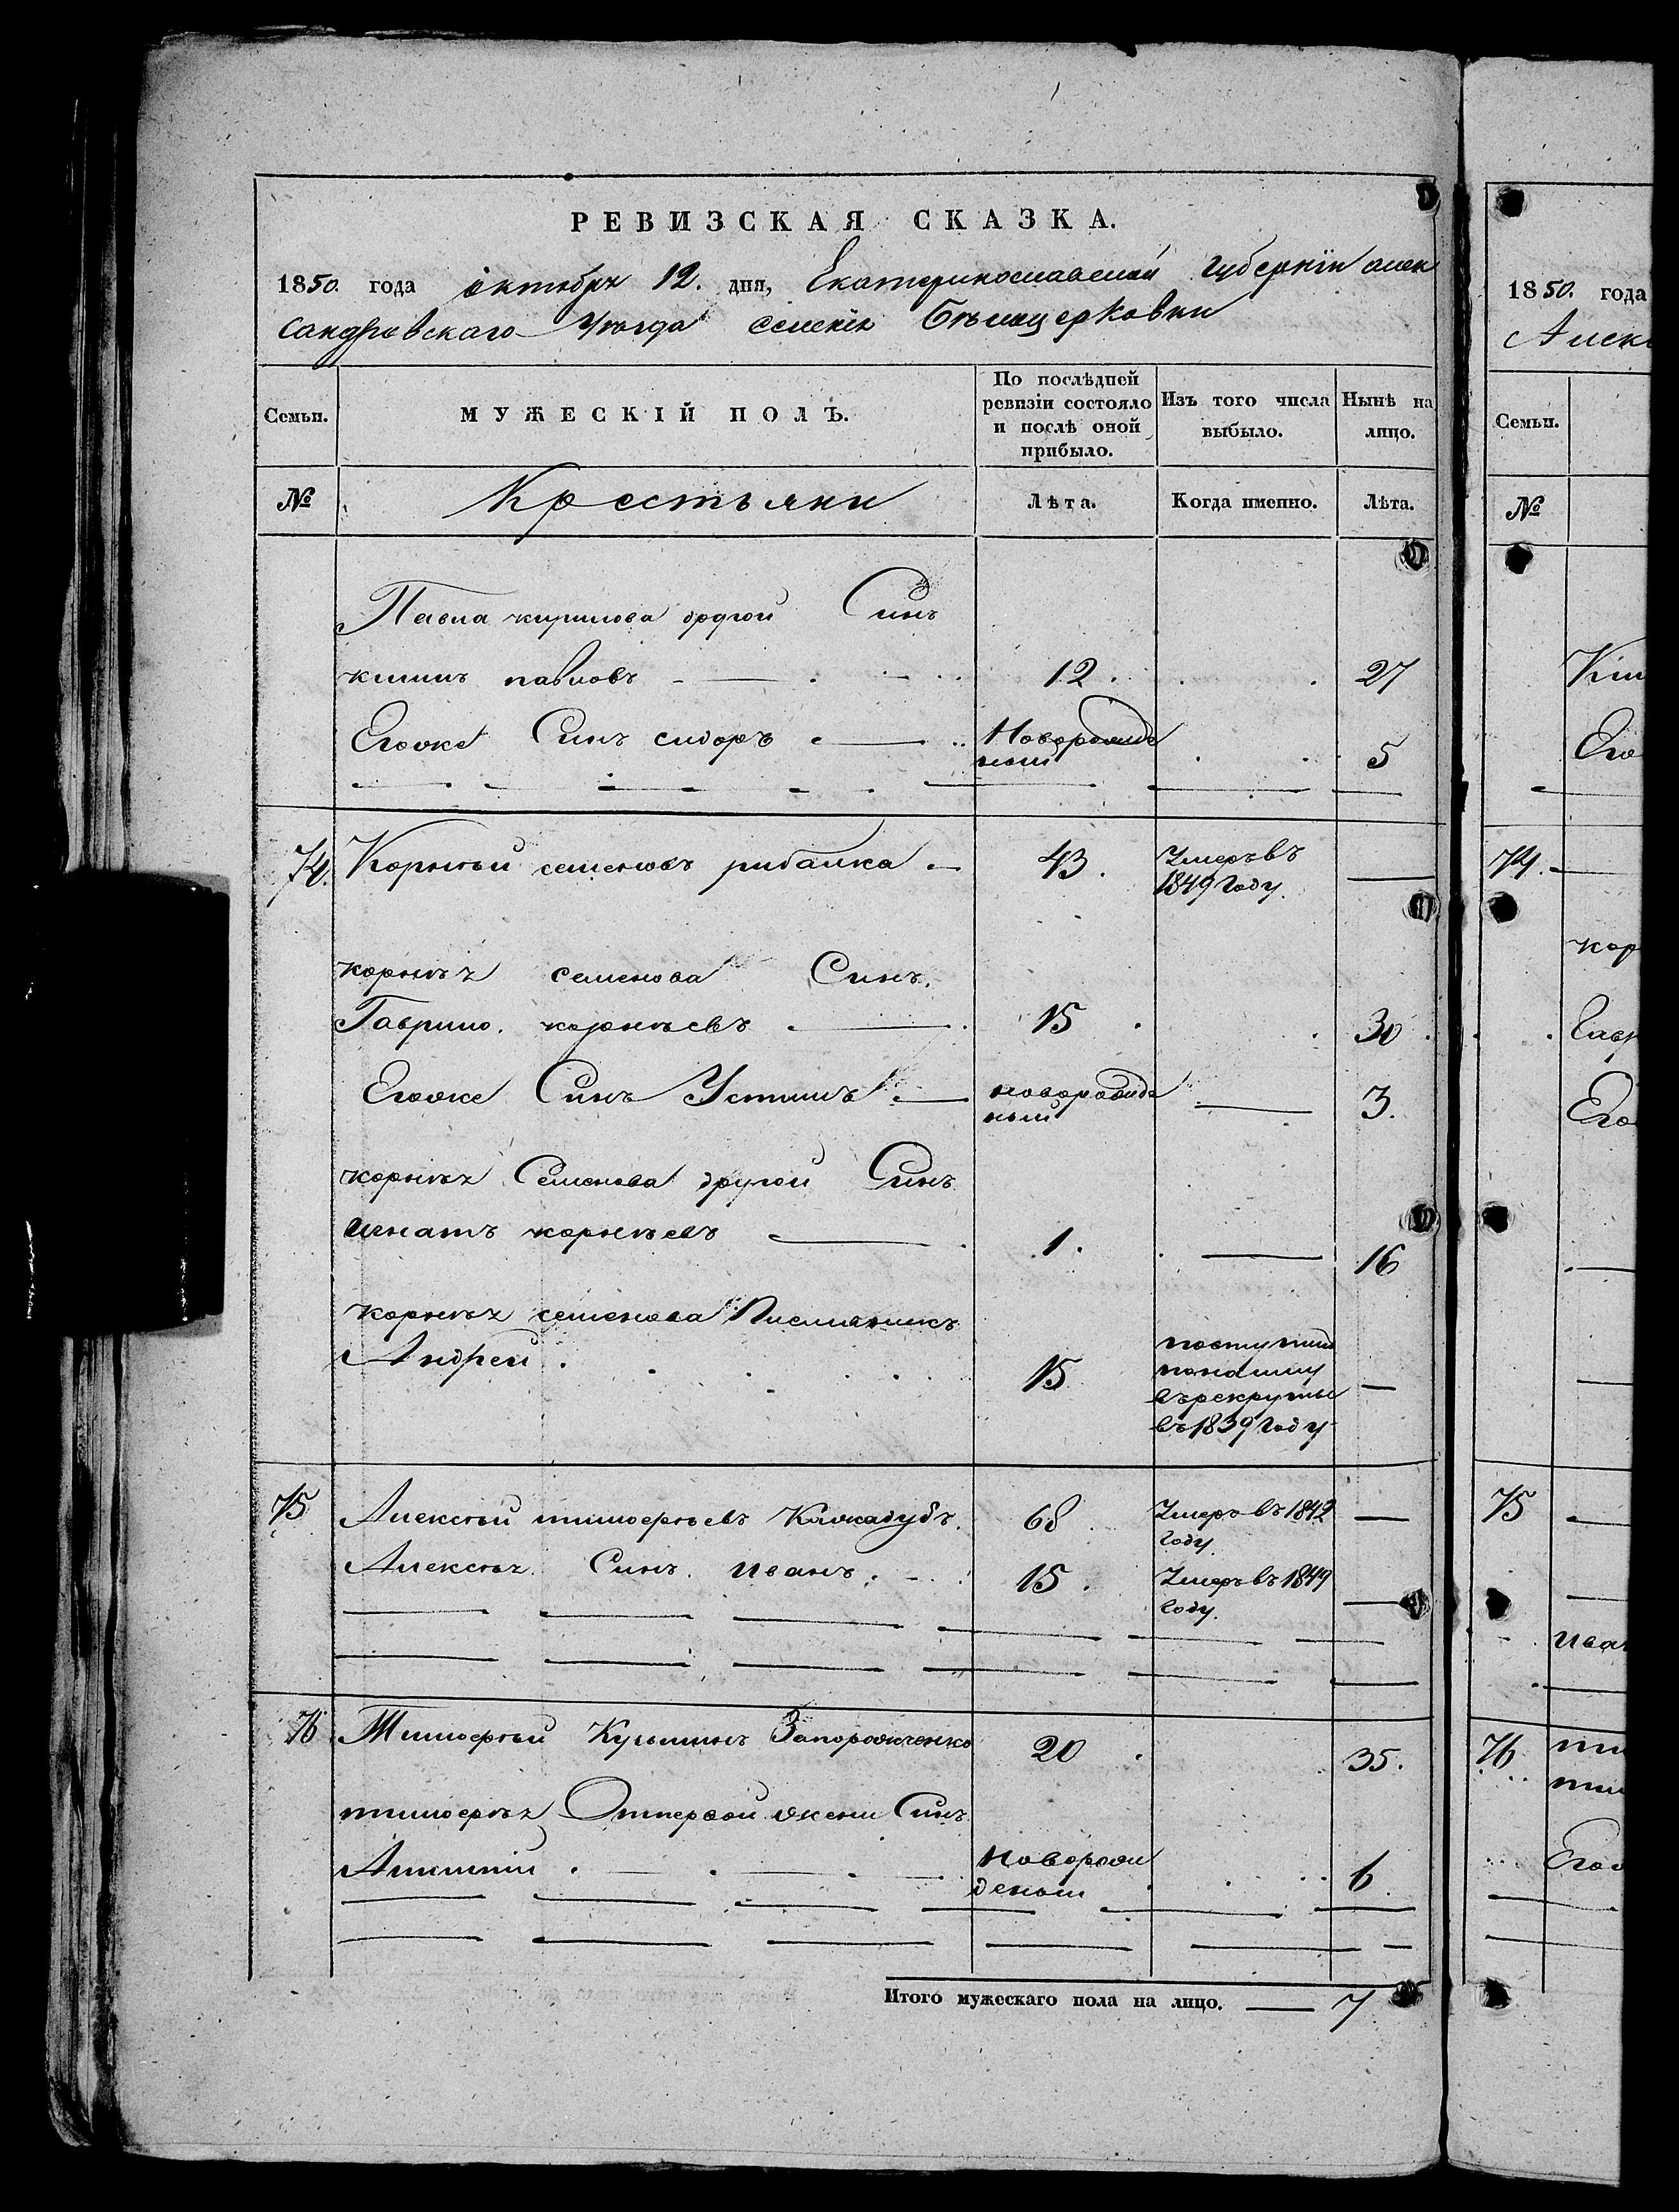 РЕВИЗСКАЯ СКАЗКА.
1850. года октября 12. дня, Екатеринославской губернiи алек
сандровскаго Уѣзда селенiя Бѣлицерковки
Семьи. МУЖЕСКІЙ ПОЛЪ. По послѣдней ревизіи состояло и послѣ оной прибыло. Изъ того числа выбыло. Нынѣ на лицо.
№ Крестьяни Лѣта. Когда именно. Лѣта.
Павла кирилова другой Синъ
климъ павловъ 12. 27
Егоже Синъ сидоръ Новорожде
ныи 5
74. Корнѣй семеновъ рибалка 43. Умеръ въ
1849 Году. —
корнѣя семенова Синъ.
Гаврило. корнѣевъ 15. 30
Егоже Синъ Устимъ новорожде
ныи 3.
корнѣя Семенова другой Синъ
игнатъ корнѣевъ 1. 16
корнѣя семенова Писмяникъ
Андрей. 15 поступил
понайму
въ рекруты
въ 1839 Году —
75 Алексѣй тимофѣевъ Кажадубъ. 68. Умеръ въ 1842
Году. —
Алексѣя Синъ. Иванъ. 15. Умеръ въ 1849
Году. —
76 Тимофѣй Кузьминъ Запорожченко 20. 35.
тимофѣя От первой жени Синъ
Алимпiй новорож
деныи 6.
Итого мужескаго пола на лицо. — 7
1850. года
Алекс
Семьи.
№
Кли
Его
74.
кор
Гавр
Его
75
иван
76 ти
тим
Егож